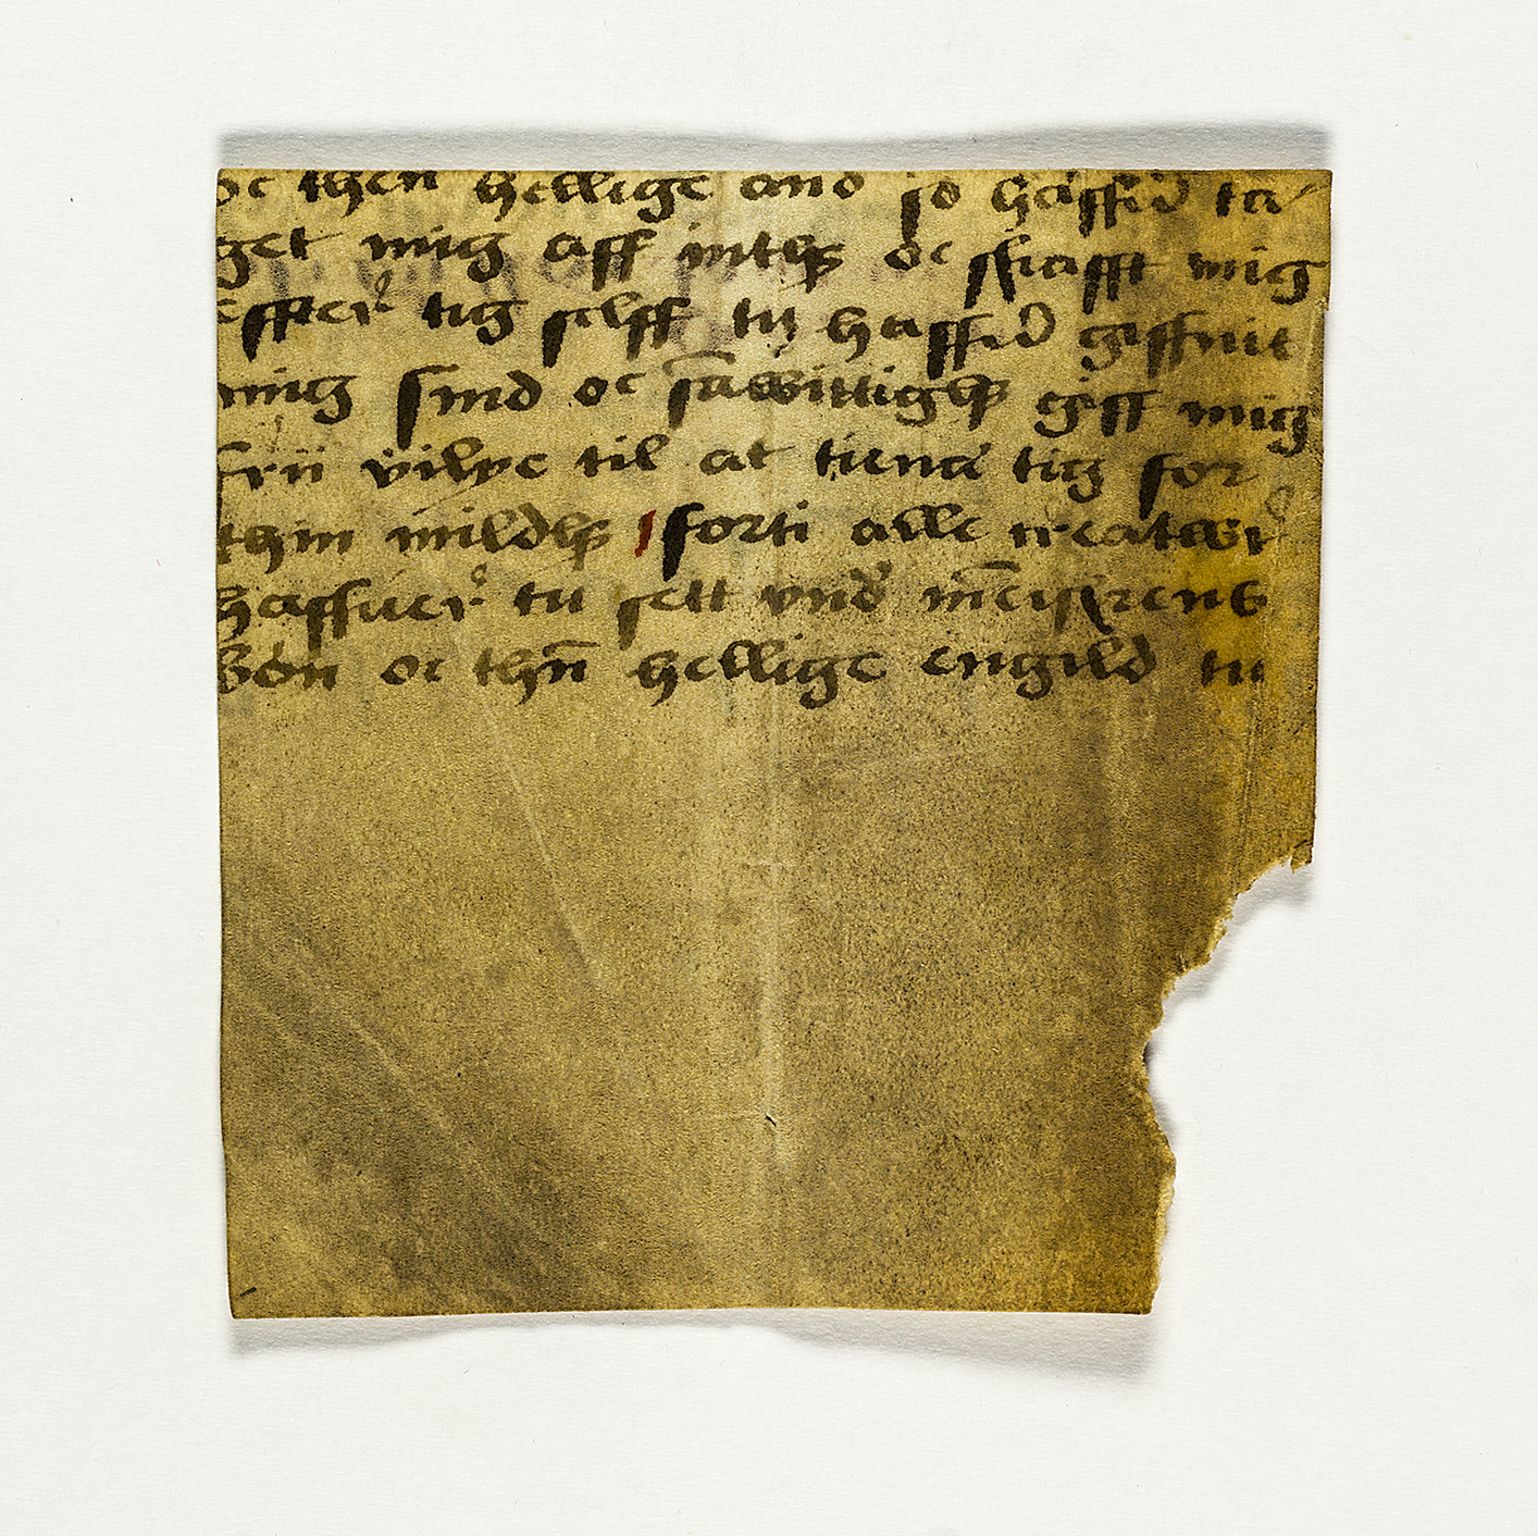 oc then hellige and so haffu̅ ta
get mig aff inthꝫ oc skafft mig
effter tig selff tw haffu̅ giffuit
mig sind oc sa̅wittighꝫ giff mig
frii vilye til at tiena tig for
thin mildhꝫ forti alle creatwr
haffuer tu sett vnd̕ me̅nyskens
bøn oc thn̅ hellige engild tii